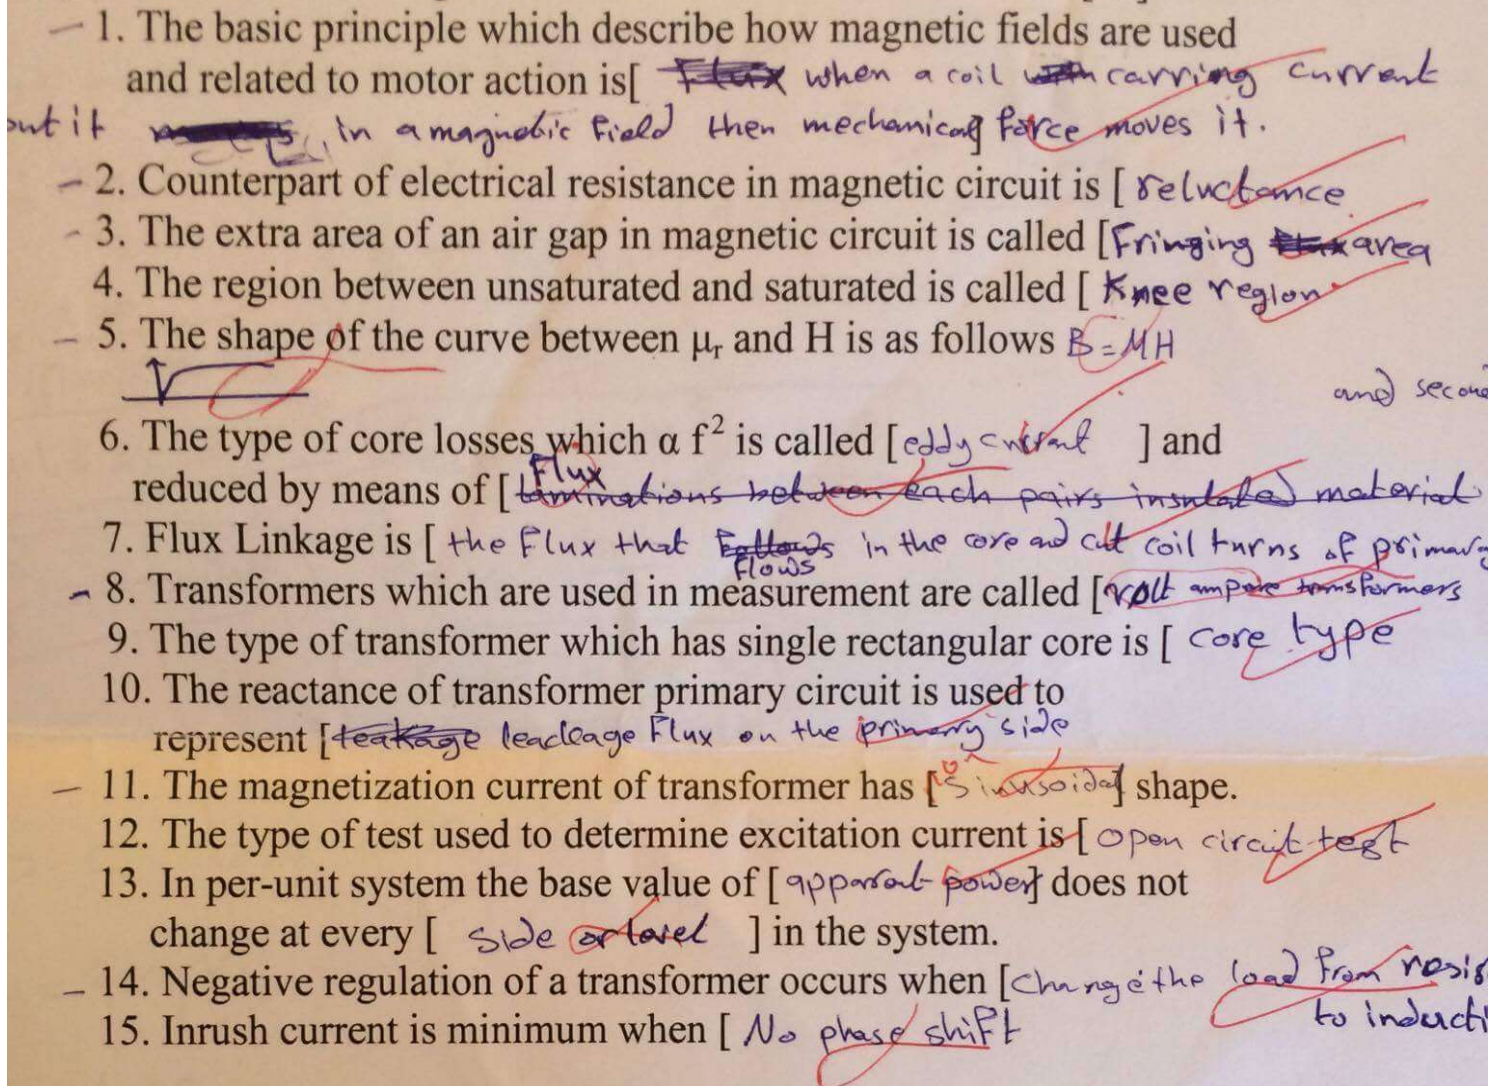 1. The basic principle which describe how magnetic fields are used
and related to motor action is[ Flux when a coil carring current
put it in a magnetic field then mechanical] force moves it.
2. Counterpart of electrical resistance in magnetic circuit is [ reluctance
3. The extra area of an air gap in magnetic circuit is called [Fringing flux area
4. The region between unsaturated and saturated is called [ Knee region
5. The shape of the curve between μr and H is as follows B=MH
and second
6. The type of core losses which α f² is called [eddy current ] and
Flux
reduced by means of [laminations between each pairs insulated material
7. Flux Linkage is [ the flux that Follows in the core and cut coil turns of primary
flows
8. Transformers which are used in measurement are called [volt ampere transformers
9. The type of transformer which has single rectangular core is [ core type
10. The reactance of transformer primary circuit is used to
represent [leakage leackage Flux on the primary side
11. The magnetization current of transformer has [Sinusoidal] shape.
12. The type of test used to determine excitation current is [ open circuit test
13. In per-unit system the base value of [apparat power] does not
change at every [ side or lavel ] in the system.
14. Negative regulation of a transformer occurs when [change the load from resis
to inducti
15. Inrush current is minimum when [ No phase shift